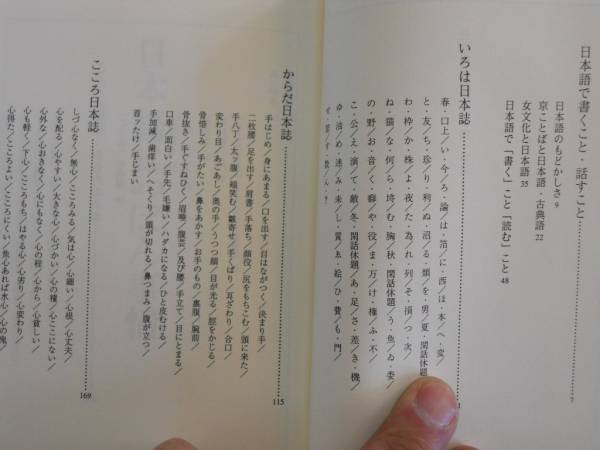 日本語で書くこと・話すこと……7
日本語のもどかしさ 9
京ことばと日本語・古典語 22
女文化と日本語 35
日本語で「書く」こと「読む」こと 48
いろは日本誌……1
春・口上/い・今/ろ・論/は・箔/に・西/ほ・本/へ・変/
と・友/ち・珍/り・利/ぬ・沼/る・類/を・男/夏・閑話休題
わ・枠/か・株/よ・夜/た・為/れ・列/そ・損/つ・次/
ね・猫/な・何/ら・埒/む・胸/秋・閑話休題/う・魚/ゐ・委/
の・野/お・音/く・癖/や・役/ま・万/け・権/ふ・不/
こ・公/え・演/て・敵/冬・閑話休題/あ・足/さ・差/き・機/
ゆ・油/め・迷/み・未/し・質/ゑ・絵/ひ・費/も・門/
からだ日本誌……115
手はじめ/身にあまる/口を出す/目はながつく/決まり手/
二枚腰/足を出す/肩書/手落ち/顔役/尻をもちこむ/頭に来た/
手八丁/太ッ腹/頬笑む/皺寄せ/手くばり/耳ざわり/合口/
変わり目/あごあし/奥の手/うつつ顔/目が光る/脛をかじる/
骨惜しみ/手がたい/鼻をあかす/お手のもの/裏腹/腕前/
骨抜き/手ぐすねひく/眉唾/腹芸/及び腰/手立て/目にとまる/
口車/面白い/手先/毛嫌い/ハダカになる/ひと皮むける/
手加減/歯痒い/へそくり/頭が切れる/鼻つまみ/腹が立つ/
首ッたけ/手じまい
こころ日本誌……169
しづ心なく/無心/こころみる/気は心/心細い/心根/心丈夫/
心を配る/心やすい/大きな心/心づかい/心の種/心ここにない/
心外な/心おきなく/心にもなく/心の程/心から/心貧しい/
心も軽く/下心/こころもち/はやる心/心劣り/心変わり/
心得た/こころよい/こころにくい/魚心あれば水心/心の鬼/